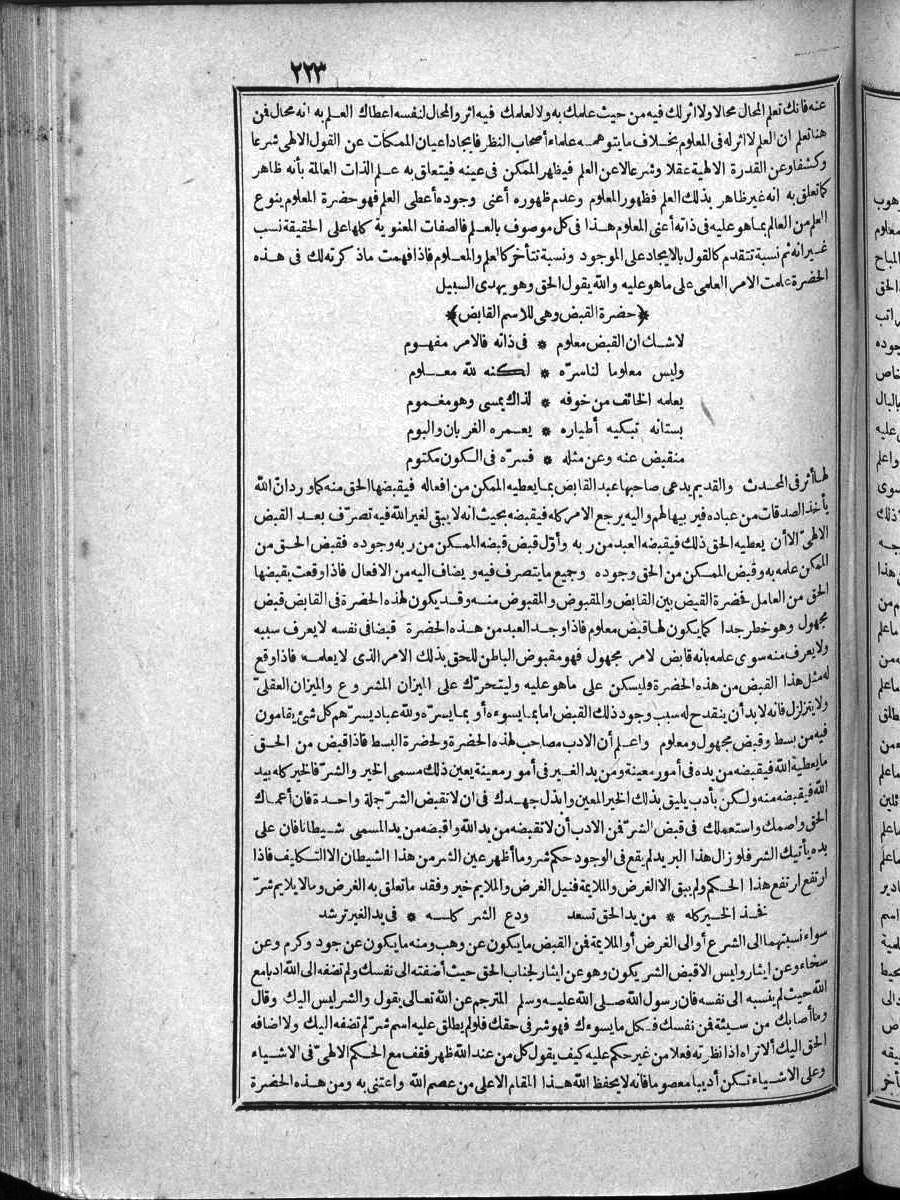 ٢٢٣
عنه فانك تعلم المحال محالا ولا اثر لك فيه من حيث علمك به ولا لعلمك فيه اثر والمحال لنفسه اعطاك العلم به انه محال فمن
هنا تعلم ان العلم لا اثر له فى المعلوم بخلاف ما يتوهمه علماء أصحاب النظر فايجاد اعيان الممكنات عن القول الالهى شرعا
وكشفا وعن القدرة الالهية عقلا وشرعا لا عن العلم فيظهر الممكن فى عينه فيتعلق به علم الذات العالمة بأنه ظاهر
كما تعلق به انه غير ظاهر بذلك العلم فظهور المعلوم وعدم ظهوره أعنى وجوده أعطى العلم فهو حضرة المعلوم ينوع
العلم من العالم بما هو عليه فى ذاته أعنى المعلوم هذا فى كل موصوف بالعلم فالصفات المعنوية كلها على الحقيقة نسب
غير انه ثم نسبة تتقدم كالقول بالايجاد على الموجود ونسبة تتأخر كالعلم والمعلوم فاذا فهمت ماذكرته لك فى هذه
الحضرة علمت الامر العلمى على ما هو عليه والله يقول الحق وهو يهدى السبيل
﴿حضرة القبض وهى للاسم القابض﴾
لا شك ان القبض معلوم * فى ذاته فالامر مفهوم
وليس معلوما لنا سرّه * لكنه لله معلوم
يعلمه الخائف من خوفه * لذاك يمسى وهو مغموم
بستانه تبكيه أطياره * يعمره الغربان والبوم
منقبض عنه وعن مثله * فسرّه فى الكون مكتوم
لها أثر فى المحدث والقديم يدعى صاحبها عبد القابض بما يعطيه الممكن من افعاله فيقبضها الحق منه كما ورد ان الله
يأخذ الصدقات من عباده فيربيها لهم واليه يرجع الامر كله فيقبضه بحيث انه لا يبقى لغير الله فيه تصرّف بعد القبض
الالهىّ الا أن يعطيه الحق ذلك فيقبضه العبد من ربه وأوّل قبض قبضه الممكن من ربه وجوده فقبض الحق من
الممكن علمه به وقبض الممكن من الحق وجوده وجميع ما يتصرف فيه ويضاف اليه من الافعال فاذا وقعت يقبضها
الحق من العامل فحضرة القبض بين القابض والمقبوض والمقبوض منه وقد يكون لهذه الحضرة فى القابض قبض
مجهول وهو خطر جدا كما يكون لها قبض معلوم فاذا وجد العبد من هذه الحضرة قبضا فى نفسه لا يعرف سببه
ولا يعرف منه سوى علمه بانه قابض لامر مجهول فهو مقبوض الباطن للحق بذلك الامر الذى لا يعلمه فاذا وقع
له مثل هذا القبض من هذه الحضرة فليسكن على ما هو عليه وليتحرّك على الميزان المشروع والميزان العقلىّ
ولا يتزلزل فانه لا بد أن ينقدح له سبب وجود ذلك القبض اما بما يسوءه أو بما يسرّه ولله عباد يسرّهم كل شئ يقامون
فيه من بسط وقبض مجهول ومعلوم واعلم أن الادب مصاحب لهذه الحضرة ولحضرة البسط فاذا قبض من الحق
ما يعطيه الله فيقبضه من يده فى أمور معينة ومن يد الغير فى أمور معينة يعين ذلك مسمى الخير والشرّ فالخير كله بيد
الله فيقبضه منه ولكن بأدب يليق بذلك الخير المعين وابذل جهدك فى ان لا تقبض الشرّ جملة واحدة فان أعماك
الحق واصمك واستعملك فى قبض الشرّ فمن الادب أن لا تقبضه من يد الله واقبضه من يد المسمى شيطانا فان على
يده يأتيك الشر فلو زال هذا البريد لم يقع فى الوجود حكم شر وما أظهر عين الشر من هذا الشيطان الا التكليف فاذا
ارتفع ارتفع هذا الحكم ولم يبق الا الغرض والملايمة فنيل الغرض والملايم خير وفقد ما تعلق به الغرض وما لا يلايم شرّ
فخذ الخير كله * من يد الحق تسعد ودع الشر كله * فى يد الغير ترشد
سواء نسبتهما الى الشرع أو الى الغرض أو الملايمة فمن القبض ما يكون عن وهب ومنه ما يكون عن جود وكرم وعن
سخاء وعن ايثار وليس الا قبض الشر يكون وهو عن ايثار لجناب الحق حيث أضفته الى نفسك ولم تضفه الى الله ادبا مع
الله حيث لم ينسبه الى نفسه فان رسول الله صلى الله عليه وسلم المترجم عن الله تعالى يقول والشر ليس اليك وقال
وما أصابك من سيئة فمن نفسك فكل ما يسوءك فهو شر فى حقك فلو لم يطلق عليه اسم شرّ لم تضفه اليك ولا اضافه
الحق اليك ألا تراه اذا نظرته فعلا من غير حكم عليه كيف يقول كل من عند الله ظهر فقف مع الحكم الالهىّ فى الاشياء
وعلى الاشياء تكن أديبا معصوما فانه لا يحفظ الله هذا المقام الا على من عصم الله واعتنى به ومن هذه الحضرة